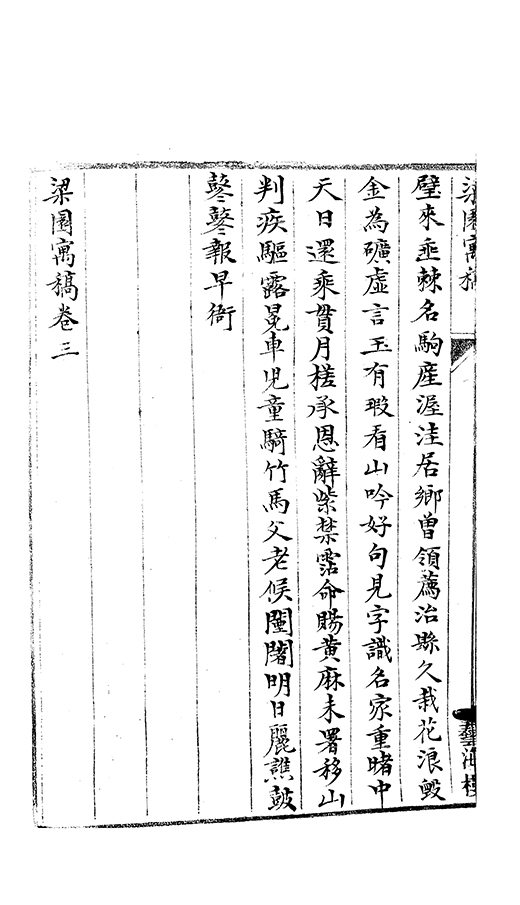 梁園寓稿
藝海樓
璧來垂棘名駒產渥洼居鄉曾領薦治縣久栽花浪毀
金為礦虛言玉有瑕看山吟好句見字識名家重睹中
天日還乘貫月槎承恩辭紫禁霑命賜黃麻未署移山
判疾驅露冕車児童騎竹馬父老候闉闍明日麗譙鼓
鼕鼕報早衙
梁園寓稿卷三